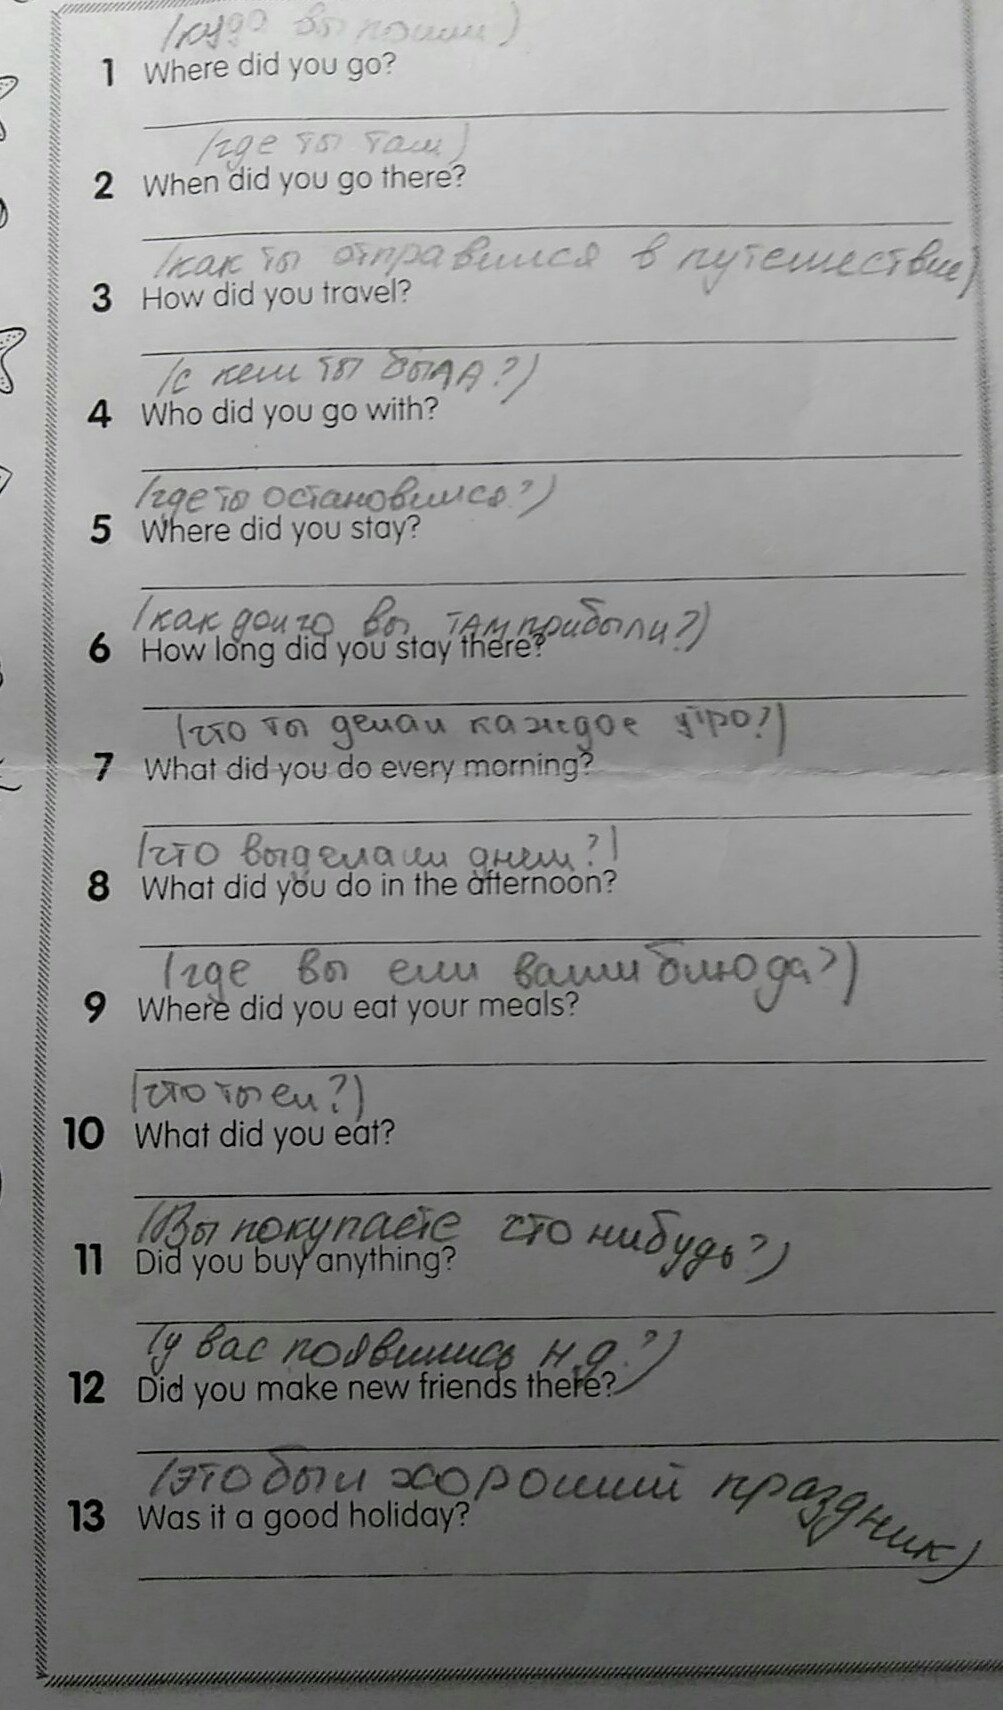 (куда вы пошли)
1 Where did you go?
(где ты там)
2 When did you go there?
(как ты отправился в путешествие)
3 How did you travel?
(с кем ты была?)
4 Who did you go with?
(где ты остановился?)
5 Where did you stay?
(как долго вы там прибыли?)
6 How long did you stay there?
(что ты делал каждое утро?)
7 What did you do every morning?
(что вы делали днем?)
8 What did you do in the afternoon?
(где вы ели ваши блюда?)
9 Where did you eat your meals?
(что ты ел?)
10 What did you eat?
(Вы покупаете что нибудь?)
11 Did you buy anything?
(у вас появились н.д.?)
12 Did you make new friends there?
(это был хороший праздник)
13 Was it a good holiday?